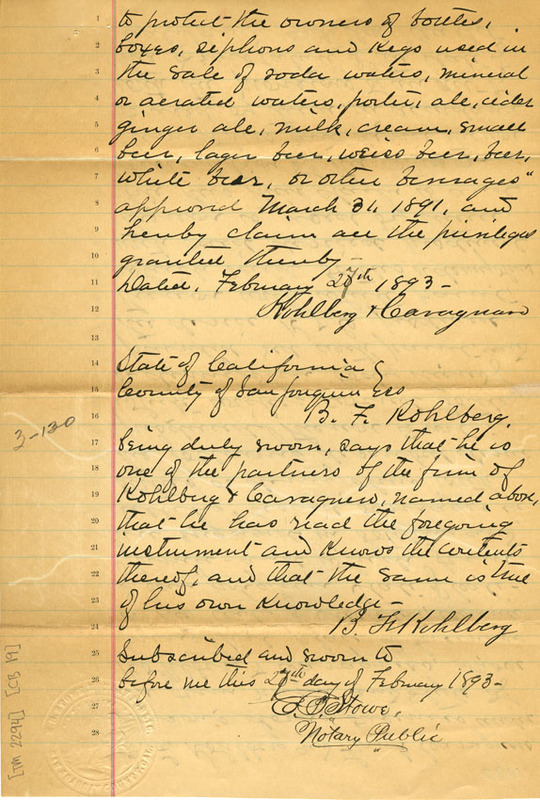 to protect the owners of bottles,
boxes, siphons and kegs used in
the sale of soda waters, mineral
or aerated waters, porter, ale, cider
ginger ale, milk, cream, small
beer, lager beer, weiss beer, beer,
white beer, or other beverages"
approved March 31, 1891, and
hereby claim all the privileges
granted thereby—
Dated, February 27th 1893—
Kohlberg & Cavagnaro
State of California
County of San Joaquin ss
B. F. Kohlberg,
being duly sworn, says that he is
one of the partners of the firm of
Kohlberg & Cavagnaro, named above,
that he has read the foregoing
instrument and knows the contents
thereof, and that the same is true
of his own knowledge—
B. F. Kohlberg
Subscribed and sworn to
before me this 27th day of February 1893—
Stowe,
"Notary Public"
1
2
3
4
5
6
7
8
9
10
11
12
13
14
15
16
17
18
19
20
21
22
23
24
25
26
27
28
3-130
[TM 2294] [CB 19]